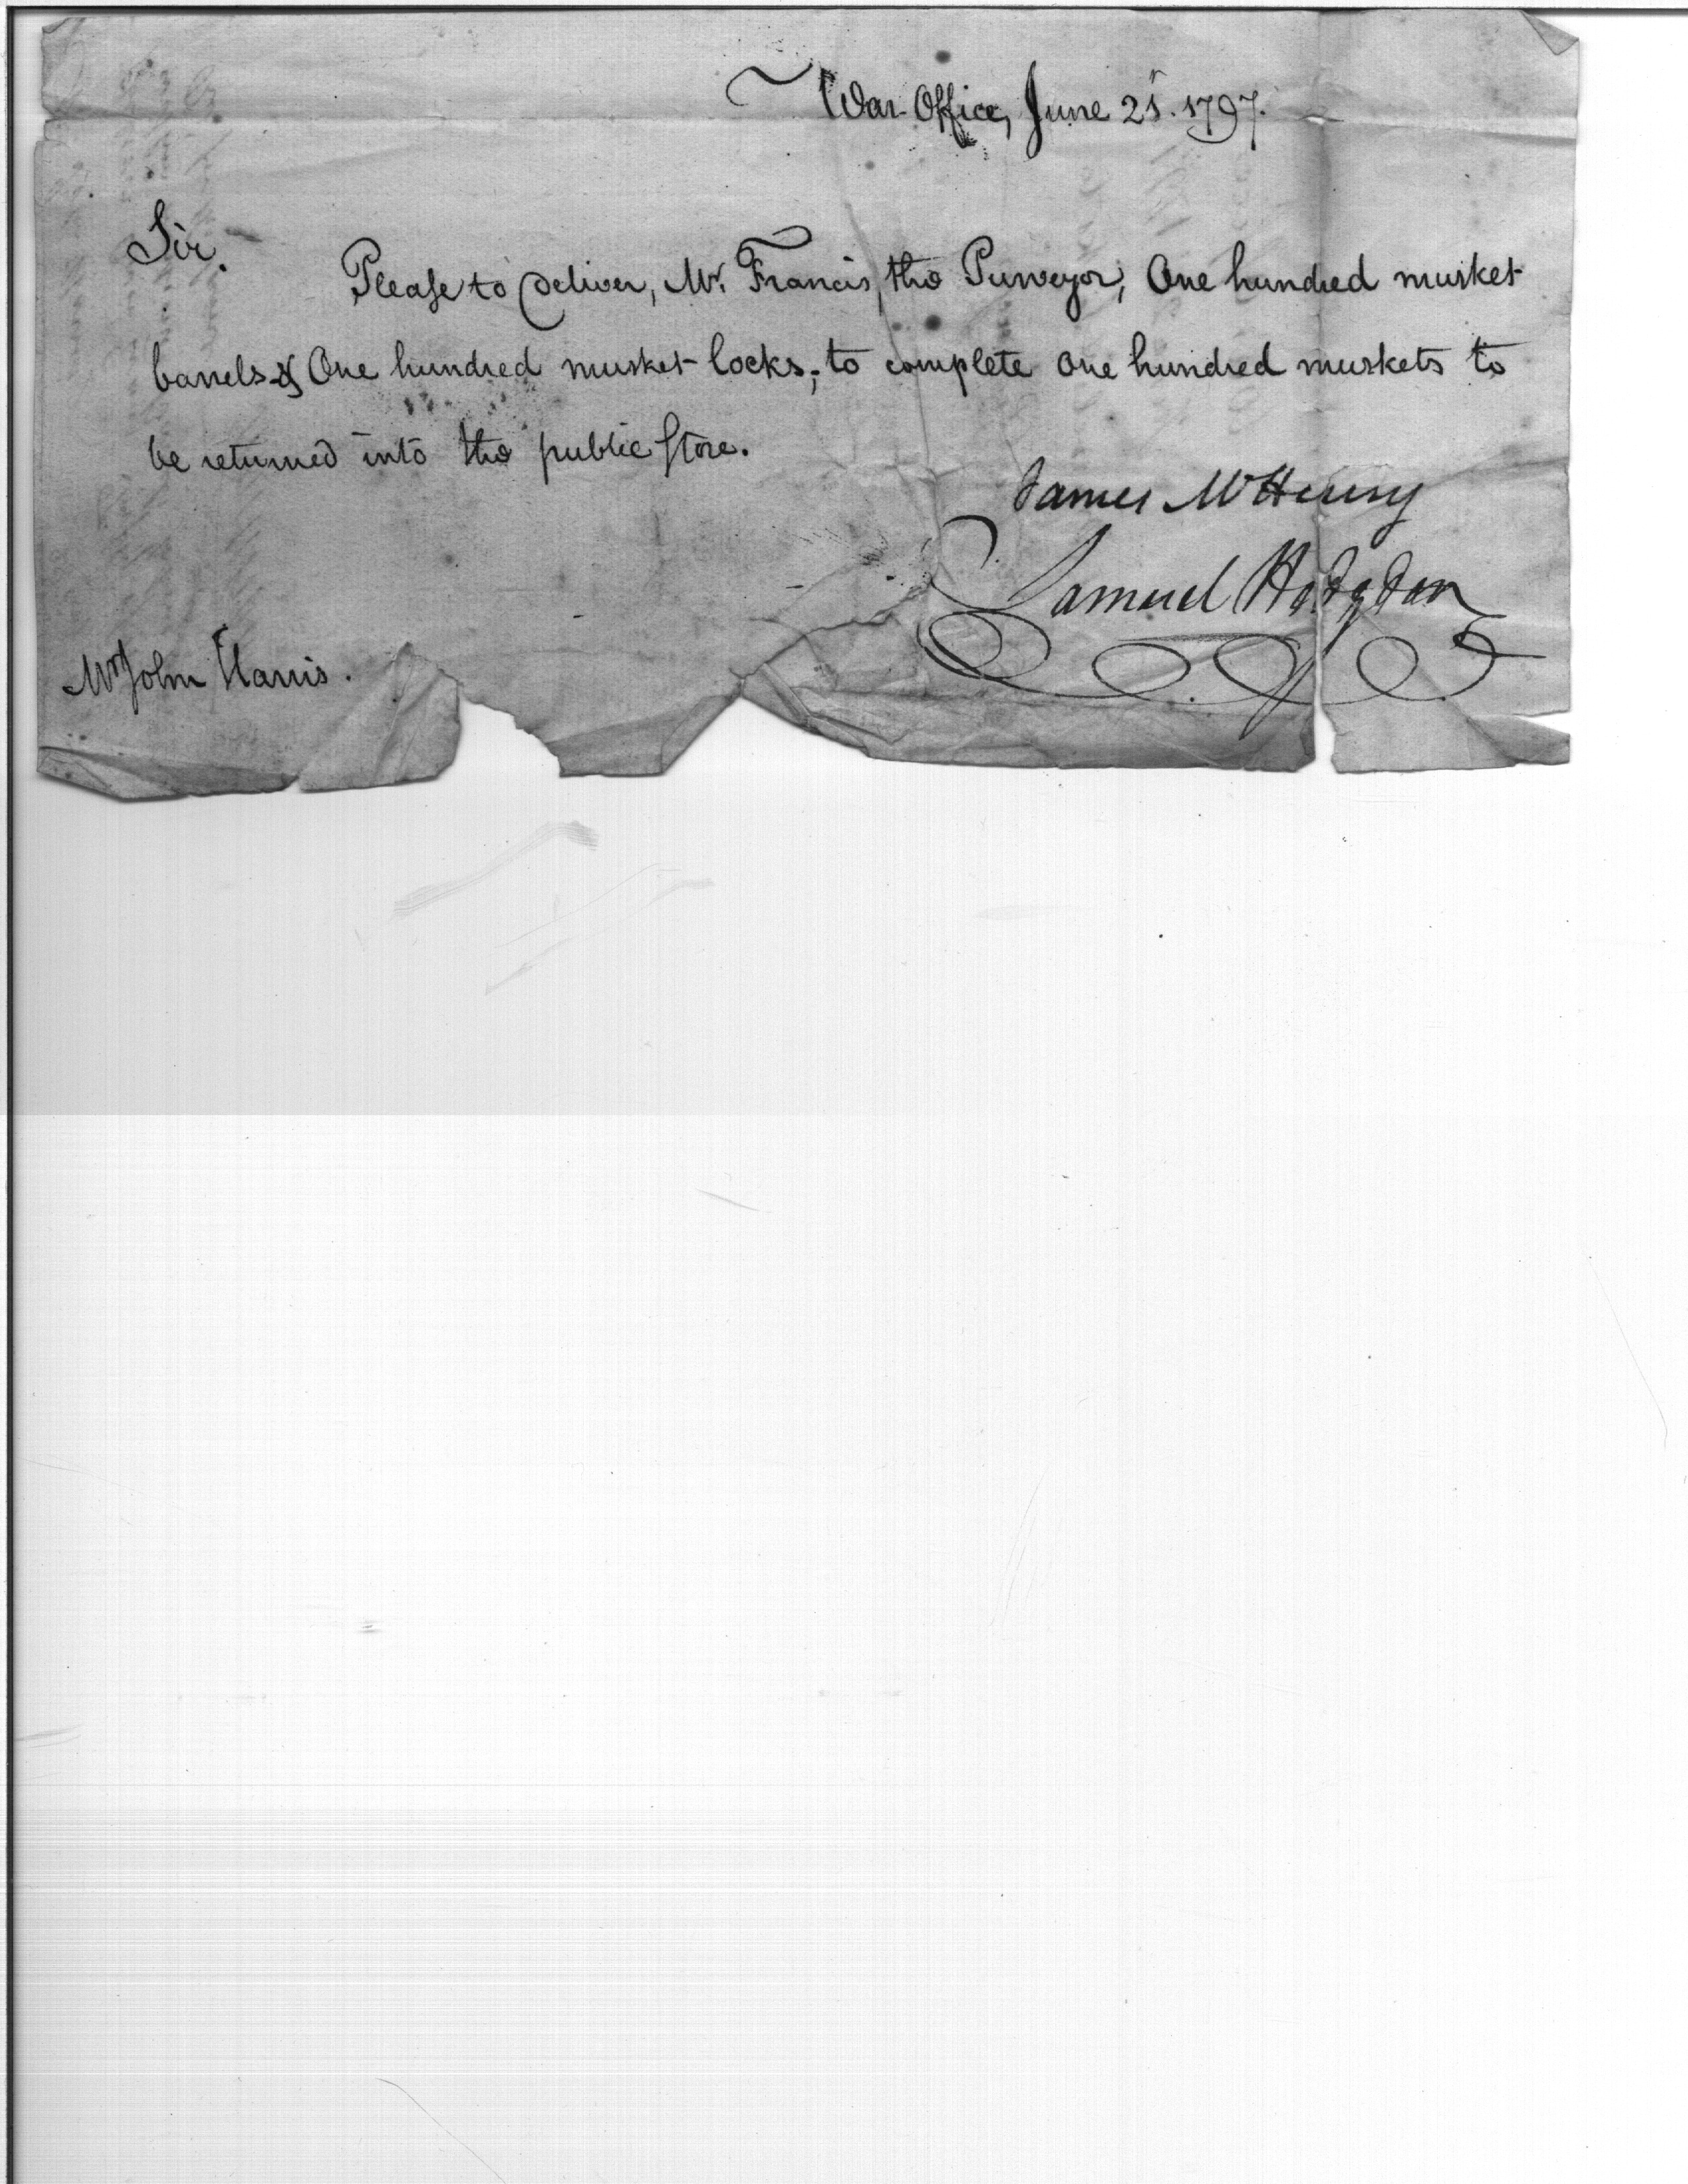 War Office, June 21. 1797.
Sir.
Please to deliver, Mr. Francis, the Purveyor, One hundred musket
barrels & One hundred musket locks, to complete one hundred muskets to
be returned into the public Store.
James McHenry
Samuel Hodgdon
Mr John Harris.